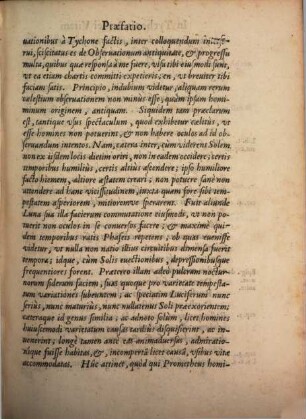 Præfatio.
uationibus à Tychone factis, inter colloquendum
sciscitatus es de Obseruationum antiquitate, & progressu
multa, quibus quæ responsa à me fuere, visa tibi eiusmodi sunt,
vt ea etiam chartis committi expetieris, en, vt breuiter tibi
faciam satis. Principio, indubium videtur, aliquam rerum
cælestium obseruationem non minùs esse, quàm ipsam hominum
originem, antiquam. Siquidem tam præclarum
est, tantíque vsus spectaculum, quod exhibetur cælitùs, vt
vel esse homines non potuerint, & non habere oculos ad id obseruandum
intentos. Nam, cætera inter, cùm viderent Solem
non ex iisdem locis dietim oriri, non in eadem occidere; certis
temporibus humiliùs, certis altiùs ascendere; ipso humiliore
facto hiemem, altiore æstatem creari; non potuere sanè non
attendere ad hanc vicissitudinem, iuxta quam fore sibi tempestatem
asperiorem, mitioremve sperarent. Fuit aliunde
Luna sua illa facierum commutatione eiusmodi, vt non potuerit
non oculos in se conuersos facere; & maximè quidem
temporibus ratis Phaseis repetens; ob quas euenisse
videtur, vt nulla non natio illius circuitibus dimensa fuerit
tempora; idque, cùm Solis euectionibus, depressionibusque
frequentiores forent. Prætereo illam adeò pulcram nocturnorum
siderum faciem, suas quoque pro varietate tempestatum
variationes subeuntem; ac spectatum Luciferum nunc
seriùs, nunc maturiùs, nunc nullatenus Solis præeuntem exortus;
cæteraque id genus similia, ac adeò solùm, licet homines
huiuscemodi varietatum causas tardiùs disquisierint, ac inuenerint;
longè tamen antè eas animaduersas, admirationique
fuisse habitas, &, incompertâ licet causâ, vsibus vitæ
accommodatas. Hûc attinet, quòd qui Prometheus homi-